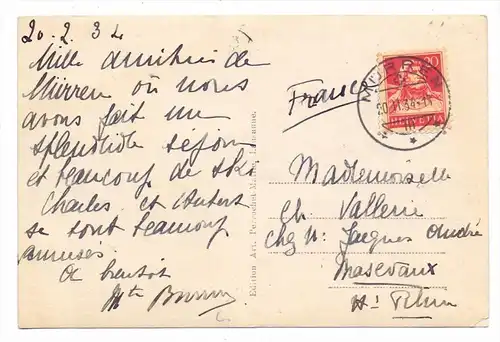 20.2.34
Mille amitiés de
Mürren où nous
avons fait un
splendide séjour
et beaucoup de ski
Charles et Hubert
se sont beaucoup
amusés
A bientôt
Mth
France
MÜRREN
20.II.34
HELVETIA
20
Mademoiselle
Ch. Vallerie
chez M. Jacques André
Masevaux
Ht Rhin
Edition Art. Perrochet-Matile, Lausanne.